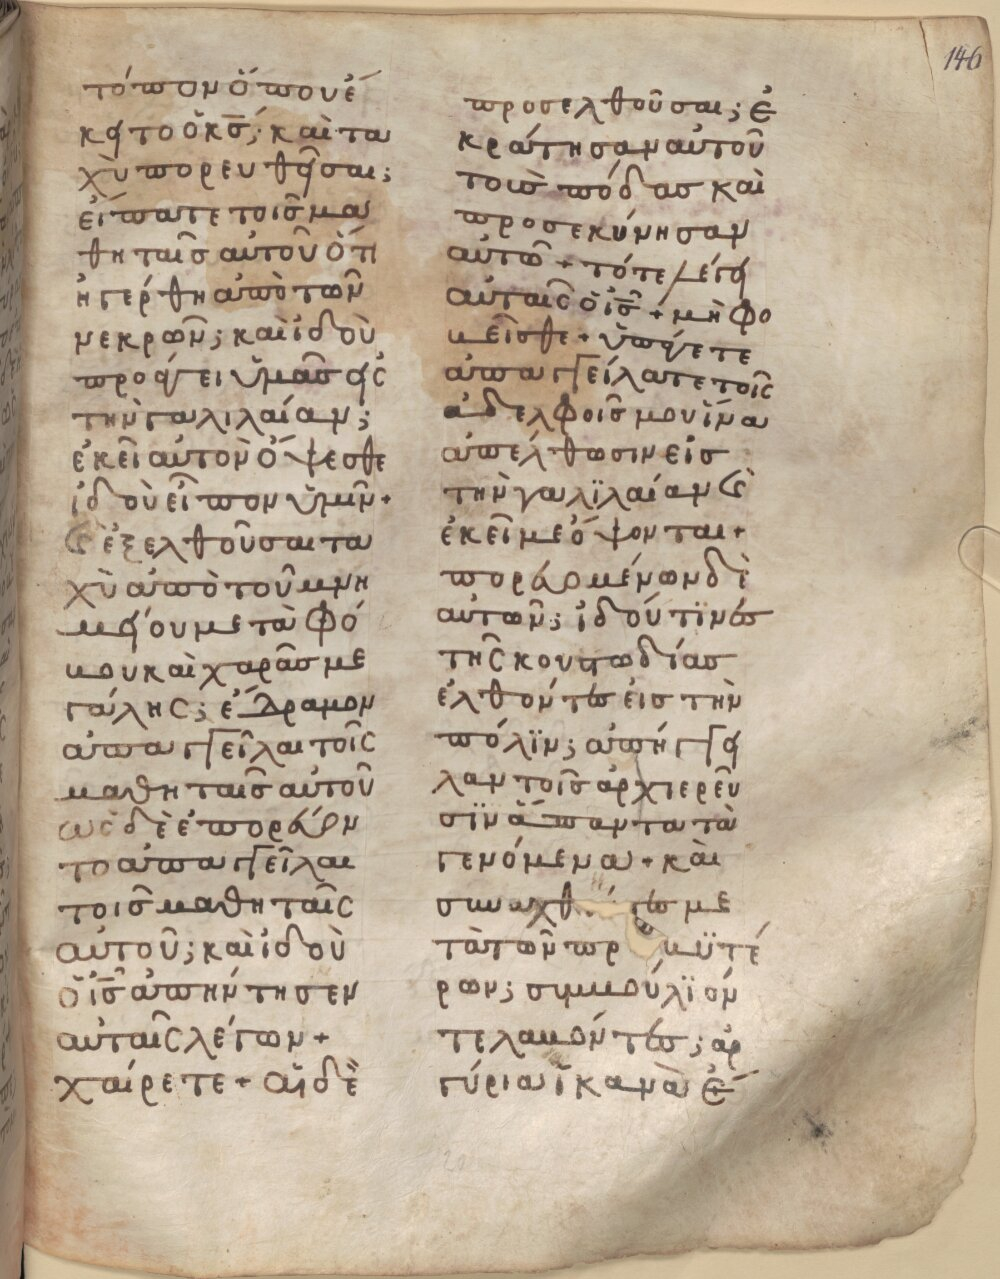 146
τόπον ὅπου ἔ
κειτο ὁ κ̅ς̅; καὶ τα
χὺ πορευθεῖσαι;
εἴπατε τοῖς μα
θηταῖς αὐτοῦ ὅτι
ἠγέρθη ἀπὸ τῶν
νεκρῶν; καὶ ἰδοὺ
προάγει ὑμᾶς εἰς
τὴν γαλιλαίαν;
ἐκεῖ αὐτὸν ὄψεσθε
ἰδοὺ εἶπον ὑμῖν +
καὶ ἐξελθοῦσαι τα
χὺ ἀπὸ τοῦ μνη
μείου μετὰ φό
βου καὶ χαρᾶς με
γάλης; ἔδραμον
ἀπαγγεῖλαι τοῖς
μαθηταῖς αὐτοῦ
ὡς δὲ ἐπορεύον
το ἀπαγγεῖλαι
τοῖς μαθηταῖς
αὐτοῦ; καὶ ἰδοὺ
ὁ ι̅ς̅ ἀπήντησεν
αὐταῖς λέγων +
χαίρετε + αἱ δὲ
προσελθοῦσαι; ἐ
κράτησαν αὐτοῦ
τοὺς πόδας καὶ
προσεκύνησαν
αὐτῶ + τότε λέγει
αὐταῖς ὁ ι̅ς̅ + μὴ φο
βεῖσθε + ὑπάγετε
ἀπαγγείλατε τοῖς
ἀδελφοῖς μου ἵνα
ἀπέλθωσιν εἰς
τὴν γαλϊλαίαν καὶ
ἐκεῖ με ὄψονται +
πορευομένων δὲ
αὐτῶν; ἰδού τϊνες
τῆς κουστωδίας
ἐλθόντες εἰς τὴν
πόλϊν; ἀπήγγει
λαν τοῖς ἀρχιερεῦ
σϊν ἅπαντα τὰ
γενόμενα + καὶ
συναχθ τες με
τὰ τῶν πρ βϋτέ
ρων; συμβούλϊόν
τε λαβόντες; ἀρ
γύρια ἱκανὰ ἔ